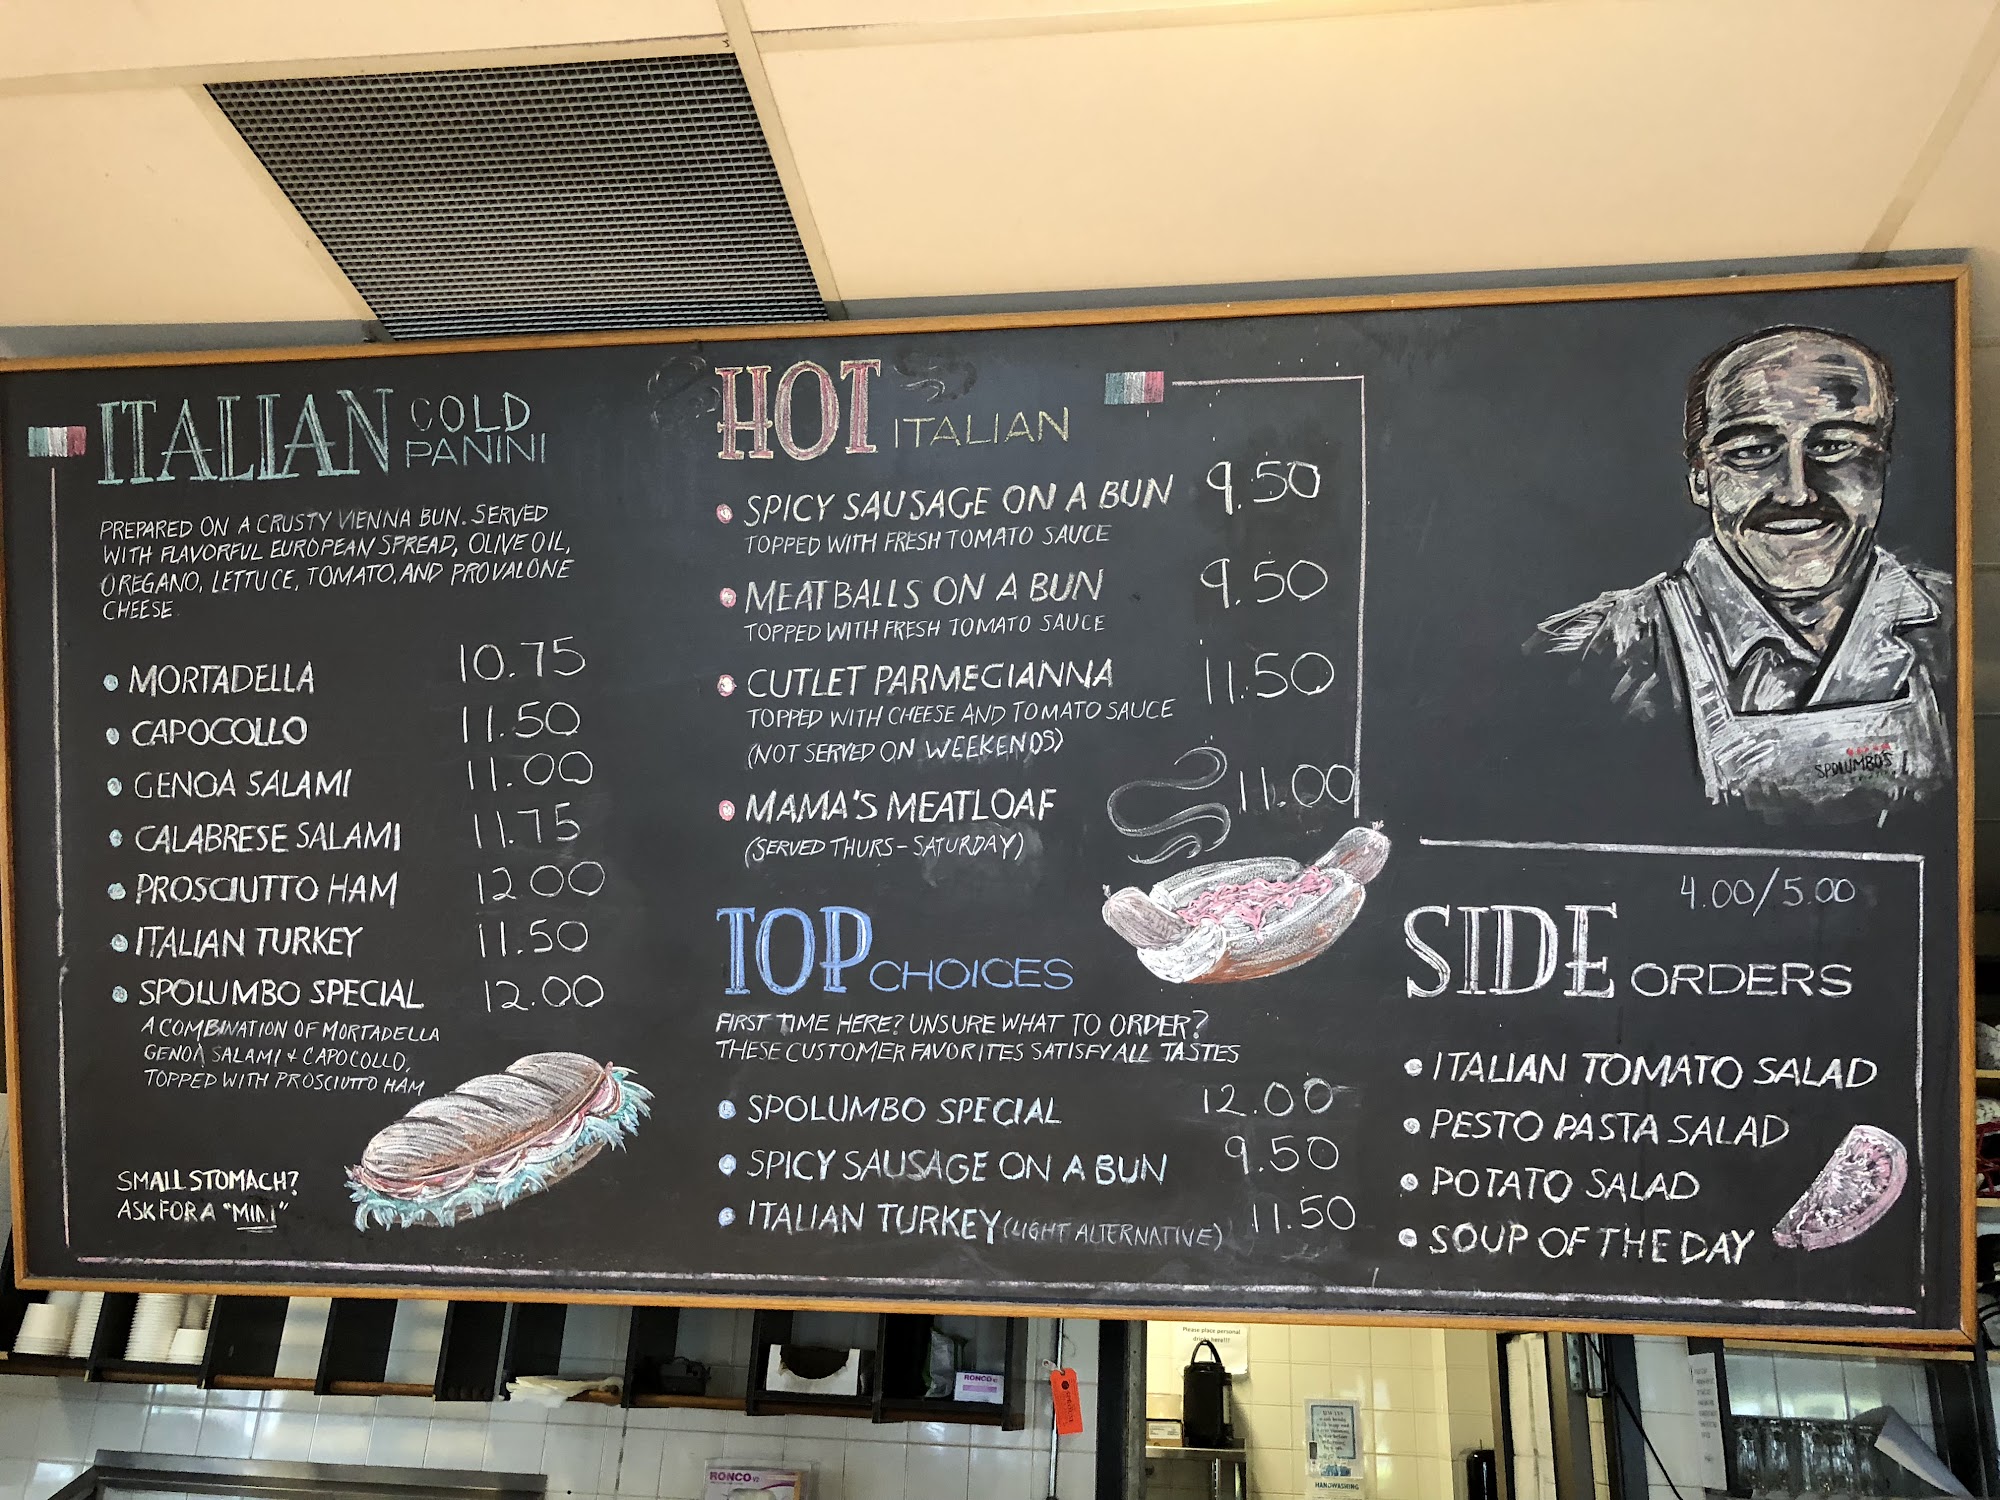 ITALIAN COLD PANINI
PREPARED ON A CRUSTY VIENNA BUN. SERVED
WITH FLAVORFUL EUROPEAN SPREAD, OLIVE OIL,
OREGANO, LETTUCE, TOMATO, AND PROVALONE
CHEESE.
MORTADELLA 10.75
CAPOCOLLO 11.50
GENOA SALAMI 11.00
CALABRESE SALAMI 11.75
PROSCIUTTO HAM 12.00
ITALIAN TURKEY 11.50
SPOLUMBO SPECIAL 12.00
A COMBINATION OF MORTADELLA
GENOA SALAMI + CAPOCOLLO,
TOPPED WITH PROSCIUTTO HAM
SMALL STOMACH?
ASK FOR A "MINI"
HOT ITALIAN
SPICY SAUSAGE ON A BUN 9.50
TOPPED WITH FRESH TOMATO SAUCE
MEATBALLS ON A BUN 9.50
TOPPED WITH FRESH TOMATO SAUCE
CUTLET PARMEGIANNA 11.50
TOPPED WITH CHEESE AND TOMATO SAUCE
(NOT SERVED ON WEEKENDS)
MAMA'S MEATLOAF 11.00
(SERVED THURS - SATURDAY)
TOP CHOICES
FIRST TIME HERE? UNSURE WHAT TO ORDER?
THESE CUSTOMER FAVORITES SATISFY ALL TASTES
SPOLUMBO SPECIAL 12.00
SPICY SAUSAGE ON A BUN 9.50
ITALIAN TURKEY (LIGHT ALTERNATIVE) 11.50
SPOLUMBO'S
4.00/5.00
SIDE ORDERS
ITALIAN TOMATO SALAD
PESTO PASTA SALAD
POTATO SALAD
SOUP OF THE DAY
Please place personal
drinks here!!!
RONCO
RONCO
HANDWASHING